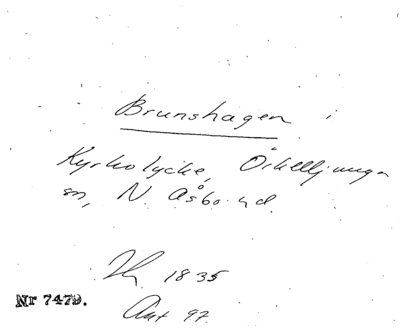 Brunshagen i
Kyrkolycke, Örkelljunga
sn, N. Åsbo hd.
1835
Ant 97.
Nr 7479.